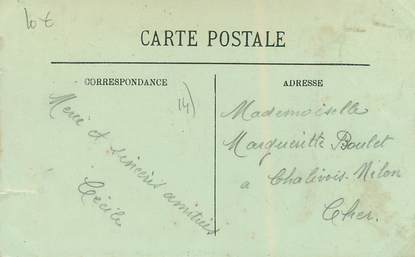 10 €
CARTE POSTALE
CORRESPONDANCE
ADRESSE
14)
Merci et sincères amitiés
Cécile
Mademoiselle
Marguerite Boulet
a Chalivoy-Milon
Cher.